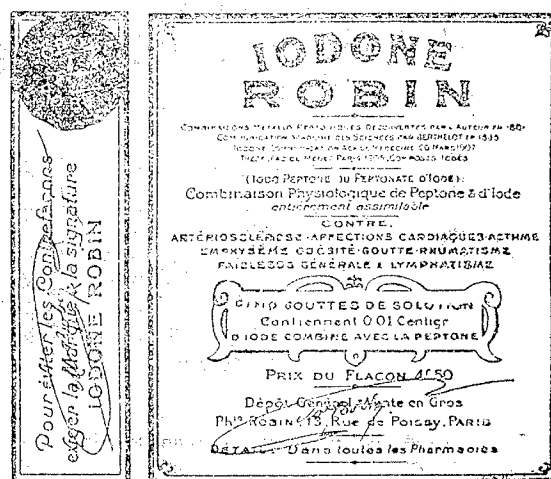 Pour éviter les Contrefaçons
exiger la Marque & la signature
IODONE ROBIN
IODONE
ROBIN
COMBINAISONS METALLO-PEPTONIQUES DECOUVERTES PAR L'AUTEUR EN 1881
COMMUNICATION ACADÉMIE DES SCIENCES PAR BERTHELOT EN 1885
IODONE COMMUNICATION ACAD MEDECINE 20 MARS 1907
(IODO PEPTONE OU PEPTONATE D'IODE):
Combinaison Physiologique de Peptone & d'Iode
entièrement assimilable
CONTRE,
ARTÉRIOSCLÉROSE-AFFECTIONS CARDIAQUES-ASTHME
EMPHYSÈME OBÉSITÉ-GOUTTE-RHUMATISME
FAIBLESSE GÉNÉRALE & LYMPHATISME
CINQ GOUTTES DE SOLUTION
Contiennent 0.01 Centigr
D'IODE COMBINÉ AVEC LA PEPTONE
PRIX DU FLACON 4f50
Dépôt Général & Vente en Gros
Phie ROBIN, 13, Rue de Poissy, PARIS
DÉTAIL: Dans toutes les Pharmacies